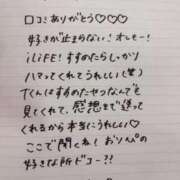 口コミありがとう♡♡♡
好きが止まらない!オレもー!
iLiFE!すすめたらしっかり
ハマってくれてうれしい(笑)
Tくんはすすめたやつなんでも
見てくれて、感想まで送って
くれるから本当にうれしい♡
ここで聞くね!おりぴの
好きな所ドコー?!